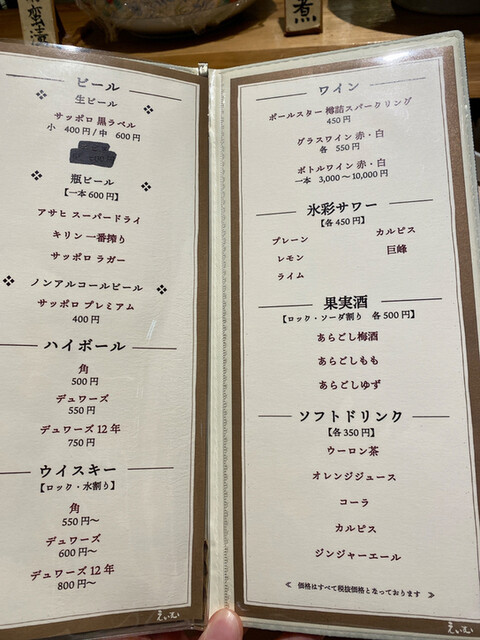 煮
ビール
生ビール
サッポロ 黒ラベル
小 400円/中 600円
瓶ビール
【一本600円】
アサヒ スーパードライ
キリン 一番搾り
サッポロ ラガー
ノンアルコールビール
サッポロ プレミアム
400円
ハイボール
角
500円
デュワーズ
550円
デュワーズ 12年
750円
ウイスキー
【ロック・水割り】
角
550円〜
デュワーズ
600円〜
デュワーズ 12年
800円〜
えいすい
ワイン
ポールスター 樽詰スパークリング
450円
グラスワイン 赤・白
各 550円
ボトルワイン 赤・白
一本 3,000〜10,000円
氷彩サワー
【各450円】
プレーン
レモン
ライム
カルピス
巨峰
果実酒
【ロック・ソーダ割り 各500円】
あらごし梅酒
あらごしもも
あらごしゆず
ソフトドリンク
【各350円】
ウーロン茶
オレンジジュース
コーラ
カルピス
ジンジャーエール
≪ 価格はすべて税抜価格となっております ≫
えいすい